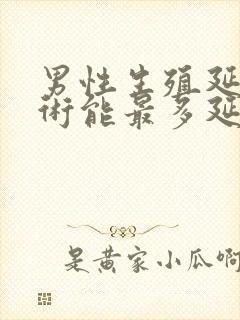 男性生殖延
术能最多延
是黄家小瓜啊